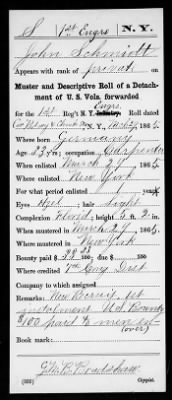 S | 1st Engrs | N. Y.
John Schmidt
Appears with rank of private on
Muster and Descriptive Roll of a Detach-
ment of U. S. Vols. forwarded
Engrs.
for the 1st Reg't N. Y. Infantry. Roll dated
N. Y., 1865.
Where born Germany
Age 33 y'rs; occupation Carpenter
When enlisted March 27, 1865.
Where enlisted New York
For what period enlisted 1 years.
Eyes Hzel; hair light
Complexion florid; height 5 ft. 2 in.
When mustered in March 27, 1865.
Where mustered in New York
Bounty paid $33 33/100; due $ 100
Where credited 7th Cong Dist
Company to which assigned
Remarks: New Recruit, 1st
instalment U.S. Bounty
$100 paid
(over)
Book mark:
G. W. B. Bradshaw
(332) Copyist.